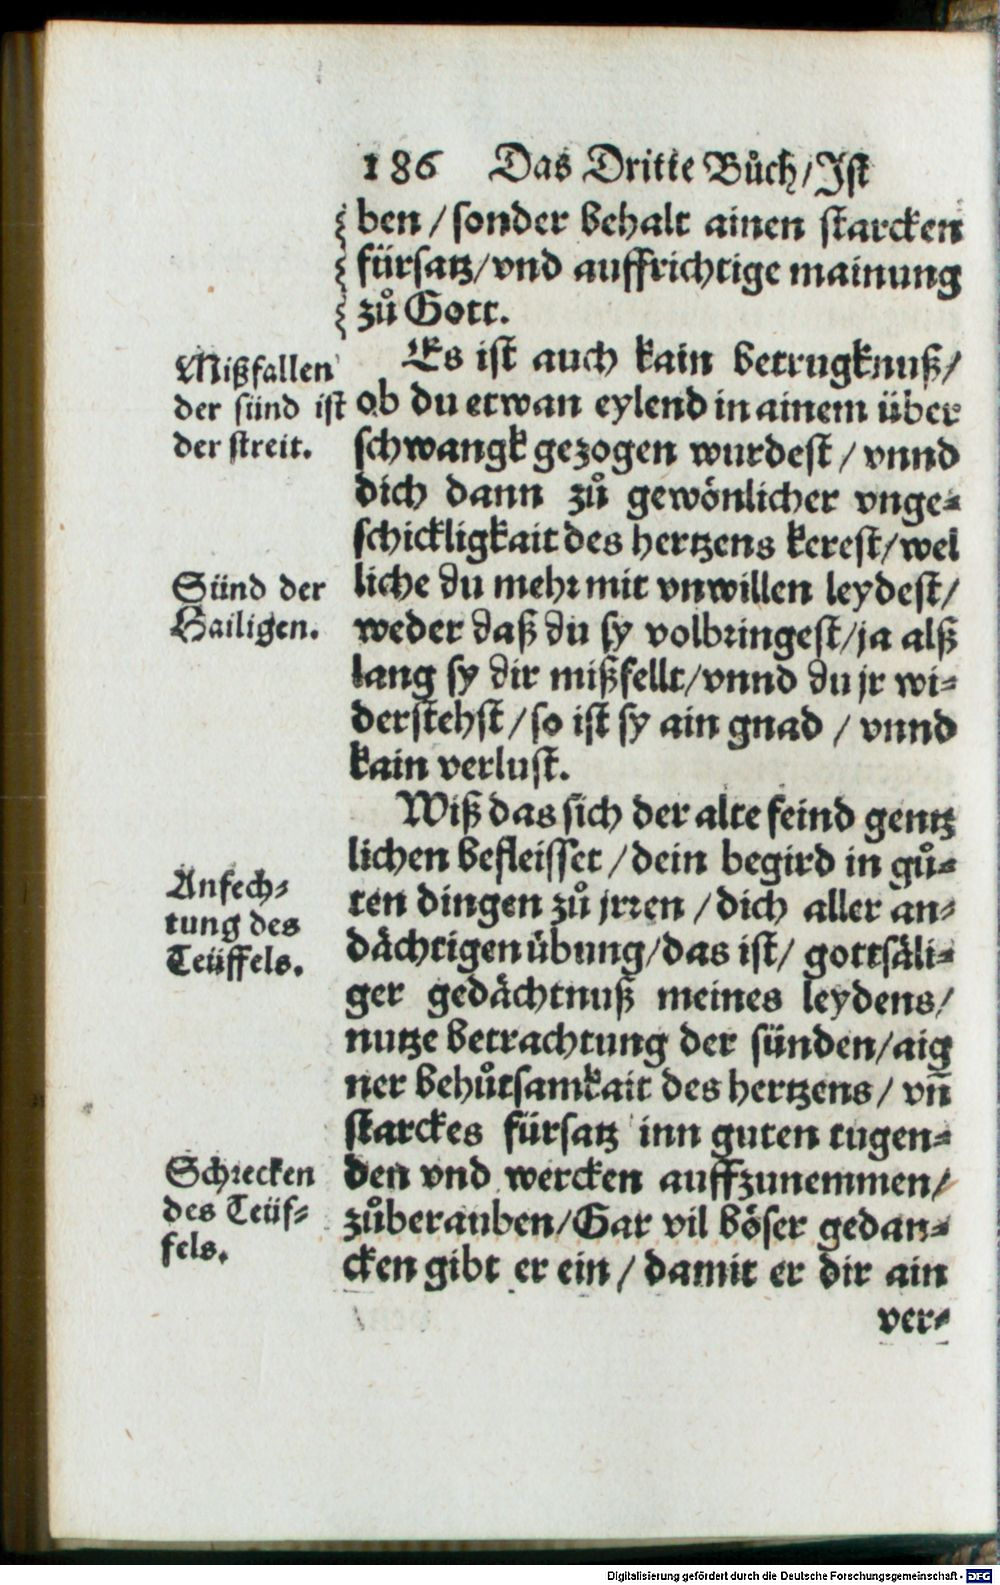 186 Das Dritte Bůch/Ist
ben/sonder behalt ainen starcken
fürsatz/vnd auffrichtige mainung
zů Gott.
Mißfallen
der sünd ist
der streit.
Es ist auch kain betrugknuß/
ob du etwan eylend in ainem über
schwangk gezogen wurdest/vnnd
dich dann zů gewönlicher vnge-
schickligkait des hertzens kerest/wel
Sünd der
Hailigen.
liche du mehr mit vnwillen leydest/
weder daß du sy volbringest/ja alß
lang sy dir mißfellt/vnnd du jr wi-
derstehst/so ist sy ain gnad/vnnd
kain verlust.
Wiß das sich der alte feind gentz
lichen befleisset/dein begird in gů-
Anfech-
tung des
Teüffels.
ten dingen zů jrren/dich aller an-
dächtigen übung/das ist/gottsäli-
ger gedächtnuß meines leydens/
nutze betrachtung der sünden/aig
ner behůtsamkait des hertzens/vñ
starckes fürsatz inn guten tugen-
Schrecken
des Teüf-
fels.
den vnd wercken auffzunemmen/
zůberauben/Gar vil böser gedan-
cken gibt er ein/damit er dir ain
ver-
Digitalisierung gefördert durch die Deutsche Forschungsgemeinschaft - DFG